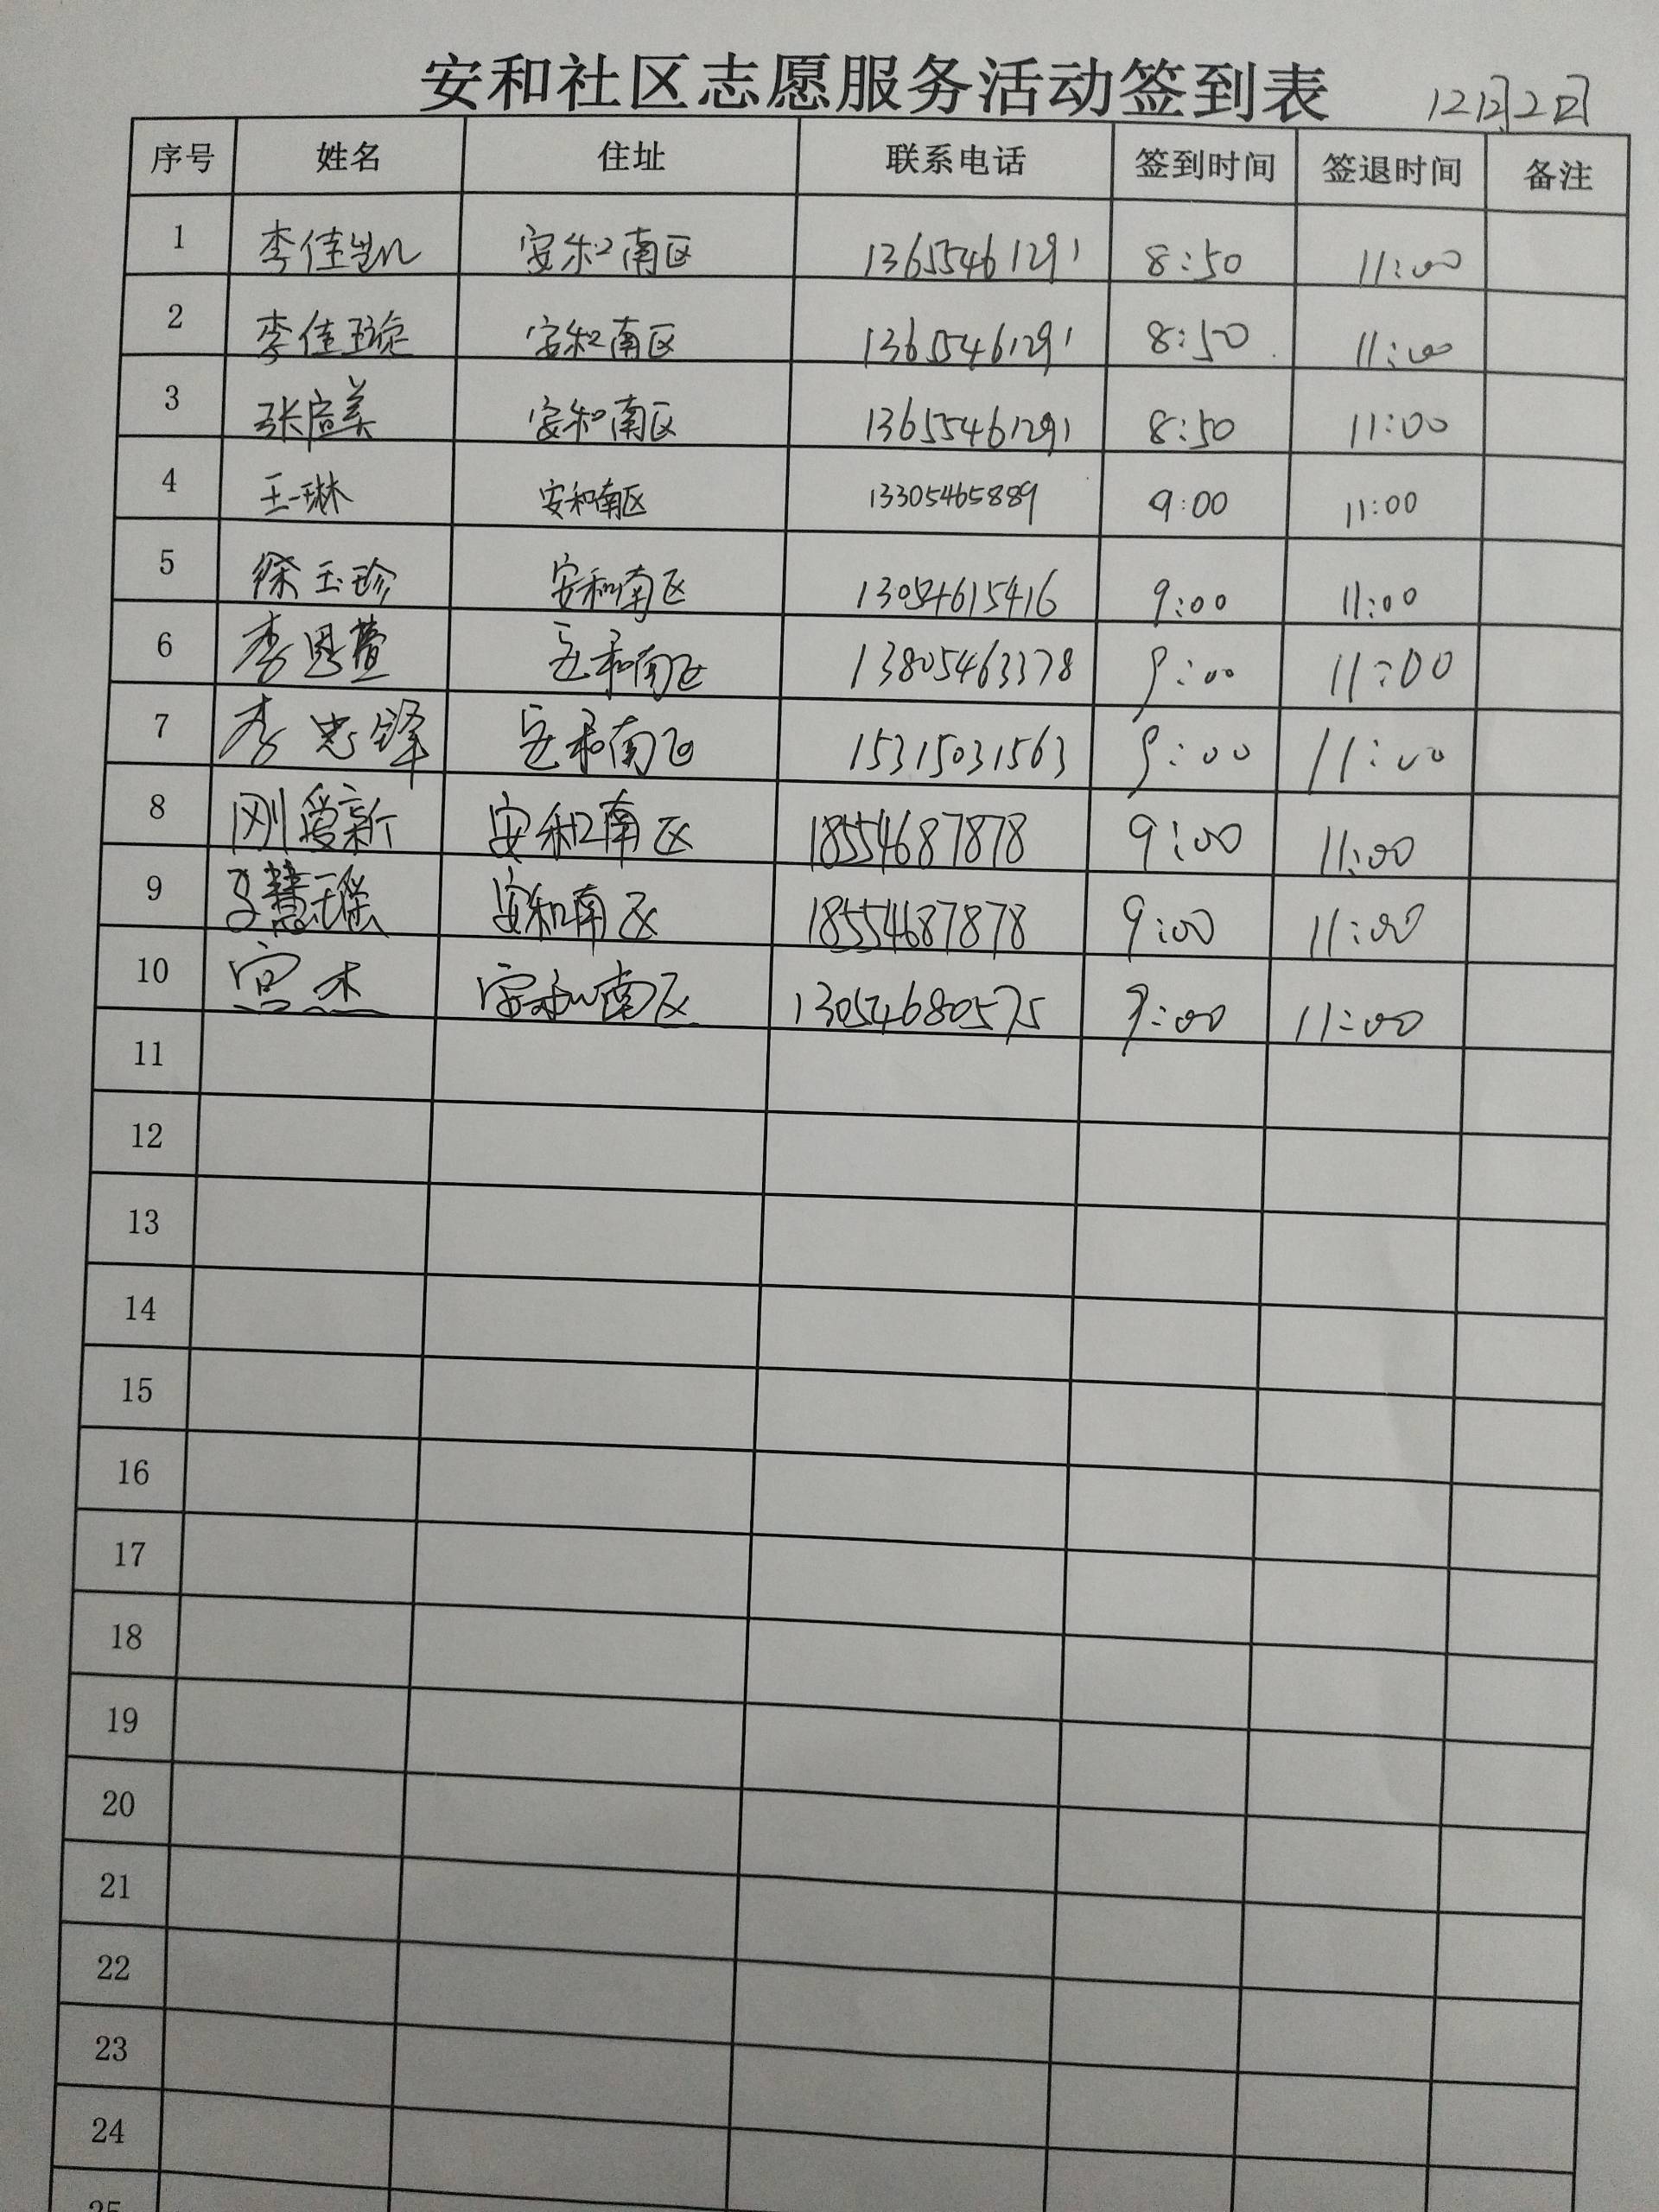 安和社区志愿服务活动签到表 12月2日
序号 姓名 住址 联系电话 签到时间 签退时间 备注
1 李佳凯 安和南区 13655461291 8:50 11:00
2 李佳璇 安和南区 13655461291 8:50 11:00
3 张宜美 安和南区 13655461291 8:50 11:00
4 王一琳 安和南区 13305465889 9:00 11:00
5 徐玉珍 安和南区 13054615416 9:00 11:00
6 李恩萱 安和南区 13805463378 9:00 11:00
7 李忠锋 安和南区 15315031563 9:00 11:00
8 刚爱新 安和南区 18554687878 9:00 11:00
9 慧瑶 安和南区 18554687878 9:00 11:00
10 宫杰 安和南区 13054680575 9:00 11:00
11
12
13
14
15
16
17
18
19
20
21
22
23
24
25